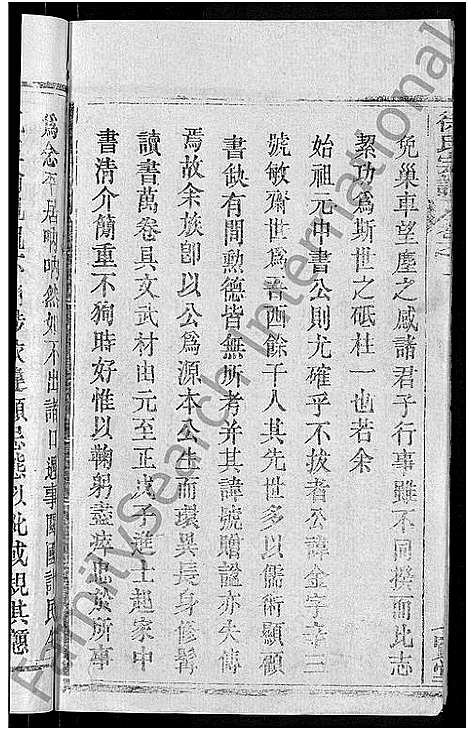 免巢車望塵之感諸君子行事雖不同揆而比志
絜功爲斯世之砥柱一也若余
始祖元中書公則尤確乎不拔者公諱金字辛三
號敏齋世爲晉西餘干人其先世多以儒術顯顧
書缺有間勲德皆無所考并其諱號贈謚亦失傳
焉故余族卽以公爲源本公生而環異長身修髯
讀書萬卷具文武材由元至正戊子進士起家中
書清介簡重不狥時好惟以鞠躬盡瘁忠於所事
爲念平居吶吶然如不出諸口遇事關國計民生
FamilySearch International